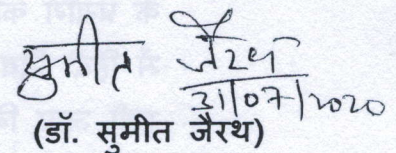 सुमीत जैरथ
31/07/2020
(डॉ. सुमीत जैरथ)